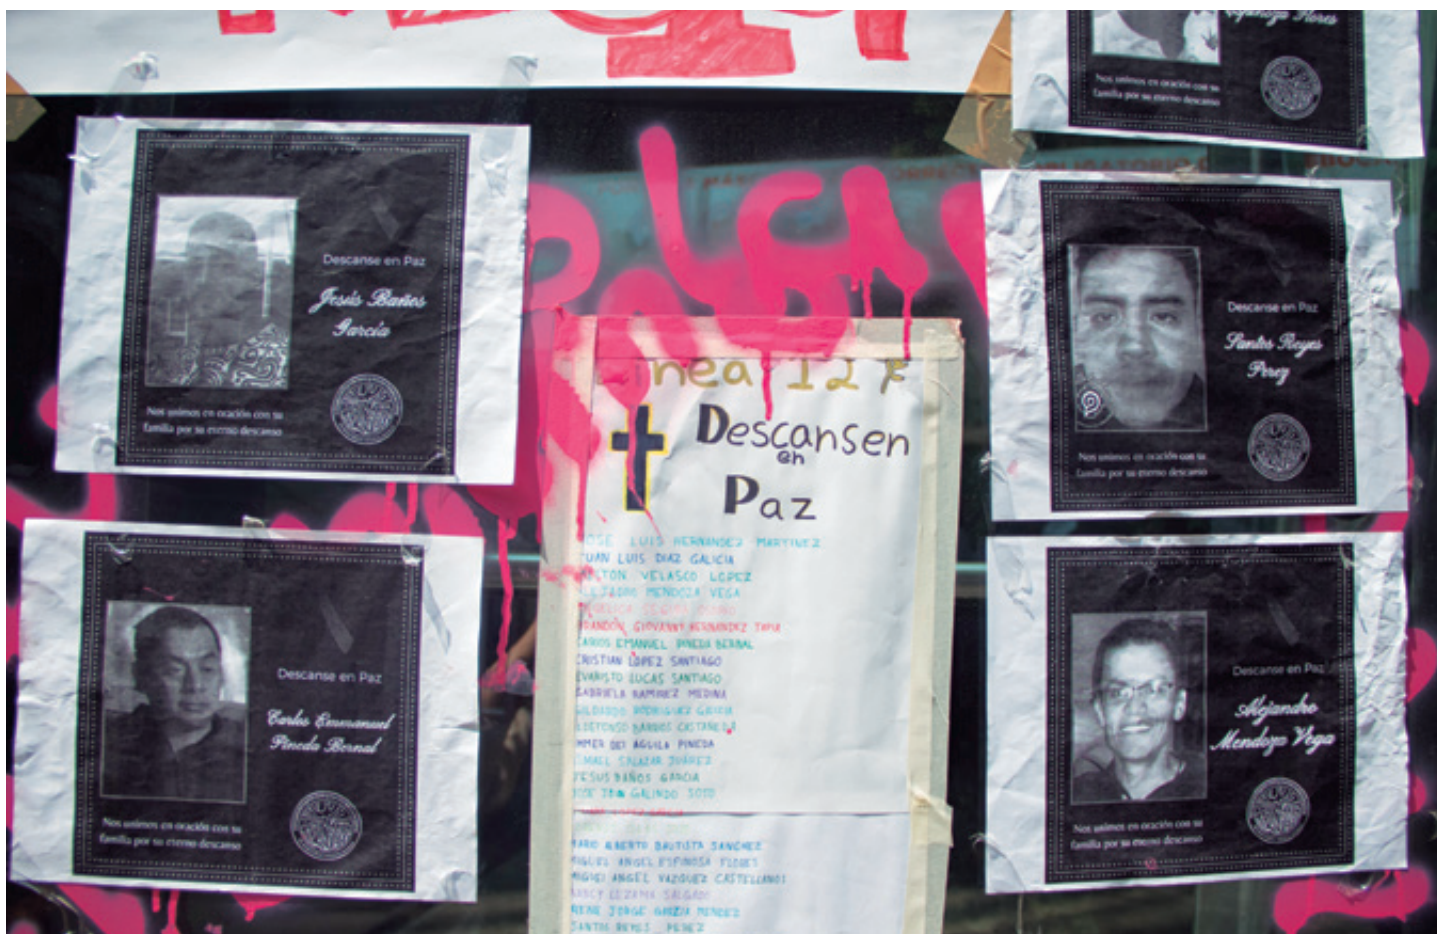 Flores
Nos unimos en oración con su
familia por su eterno descanso
Descanse en Paz
Jesús Baños
García
Nos unimos en oración con su
familia por su eterno descanso
Descanse en Paz
Carlos Emmanuel
Pineda Bernal
Nos unimos en oración con su
familia por su eterno descanso
nea 12
Descansen
en
Paz
OSE LUIS HERNANDEZ MARTINEZ
JUAN LUIS DIAZ GALICIA
TON VELASCO LOPEZ
LEJADRO MENDOZA VEGA
RANDON GIOVANNY HERNANDEZ TAPIA
CARLOS EMANUEL PINEDA BERNAL
CRISTIAN LOPEZ SANTIAGO
EVARISTO LUCAS SANTIAGO
GABRIELA RAMIREZ MEDINA
RODRIGUEZ GARCIA
LDEFONSO BARRIOS CASTAÑEDA
MMER DEL AGUILA PINEDA
SMAEL SALAZAR JUAREZ
JESUS BAÑOS GARCIA
JOSE JUAN GALINDO SOTO
MARIO ALBERTO BAUTISTA SANCHEZ
MIGUEL ANGEL ESPINOSA FLORES
MIGUEL ANGEL VAZQUEZ CASTELLANOS
NANCY LEZAMA SALGADO
RENE JORGE GARZIA MENDEZ
SANTOS REYES PEREZ
Descanse en Paz
Santos Reyes
Perez
Nos unimos en oración con su
familia por su eterno descanso
Descanse en Paz
Alejandro
Mendoza Vega
Nos unimos en oración con su
familia por su eterno descanso